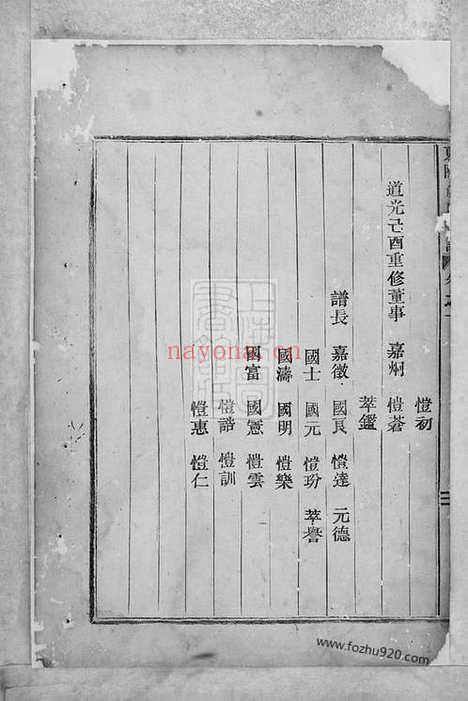 愷初
道光己酉重修董事 嘉炯 愷蒼
萃鑑
譜長 嘉徵 國良 愷達 元德
國士 國元 愷玢 萃譽
國濤 國明 愷樂
國富 國憲 愷雲
愷誥 愷訓
愷惠 愷仁
nayona.cn
www.fozhu920.com